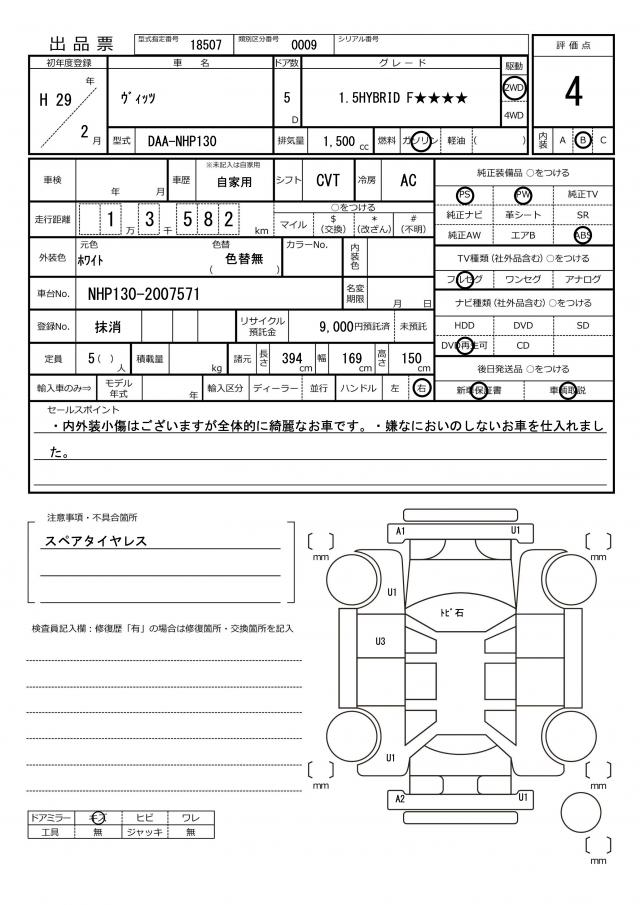 出品票 型式指定番号 18507 類別区分番号 0009 シリアル番号
評価点
4
内装 A B C
初年度登録 車名 ドア数 グレード 駆動
H 29 年 2 月 ヴィッツ 5 D 1.5HYBRID F★★★★ 2WD
4WD
型式 DAA-NHP130 排気量 1,500 cc 燃料 ガソリン 軽油 ( )
車検 年 月 車歴 ※未記入は自家用 自家用 シフト CVT 冷房 AC
走行距離 1 万 3 千 5 8 2 km
○をつける
マイル $(交換) *(改ざん) #(不明)
外装色 元色 ホワイト 色替 色替無 ( ) カラーNo. 内装色
車台No. NHP130-2007571 名変期限 月 日
登録No. 抹消 リサイクル預託金 9,000円預託済 未預託
定員 5 ( ) 人 積載量 kg 諸元 長さ 394 cm 幅 169 cm 高さ 150 cm
輸入車のみ⇒ モデル年式 年 輸入区分 ディーラー 並行 ハンドル 左 右
純正装備品 ○をつける
PS PW 純正TV
純正ナビ 革シート SR
純正AW エアB ABS
TV種類(社外品含む)○をつける
フルセグ ワンセグ アナログ
ナビ種類(社外品含む)○をつける
HDD DVD SD
DVD再生可 CD
後日発送品 ○をつける
新車保証書 車輌取説
セールスポイント
・内外装小傷はございますが全体的に綺麗なお車です。・嫌なにおいのしないお車を仕入れまし
た。
注意事項・不具合箇所
スペアタイヤレス
検査員記入欄：修復歴「有」の場合は修復箇所・交換箇所を記入
ドアミラー キズ ヒビ ワレ
工具 無 ジャッキ 無
A1 U1
[ ] mm
[ ] mm
U1
トビ石
U3
U1
[ ] mm
[ ] mm
A2 U1
[ ] mm